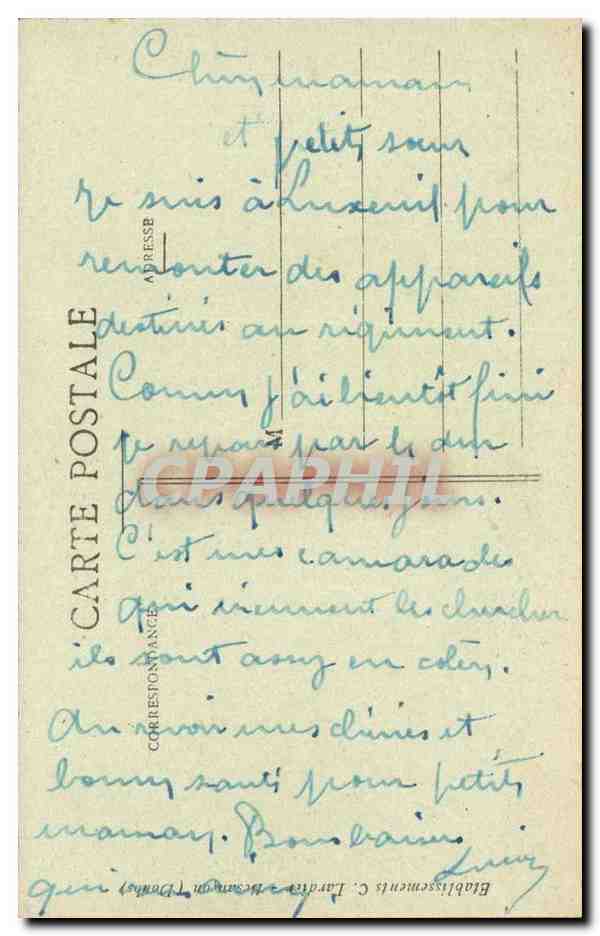 Chère maman
et petite sœur
Je suis à Luxeuil pour
remonter des appareils
destinés au régiment.
Comme j'ai bientôt fini
je repars par le
dans quelques jours.
C'est mes camarades
qui viennent les chercher
ils sont assez en colère.
Au revoir mes chéries et
bonne santé pour petite
maman. Bons baisers
qui
CARTE POSTALE
ADRESSE
CORRESPONDANCE
M
CPAPHIL
Etablissements C. Lardier - Besançon (Doubs)